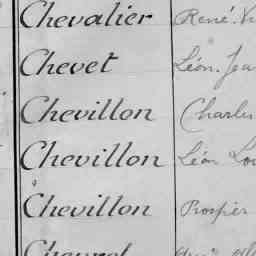 Chevalier René
Chevet Léon
Chevillon Charles
Chevillon Léon
Chevillon Prosper